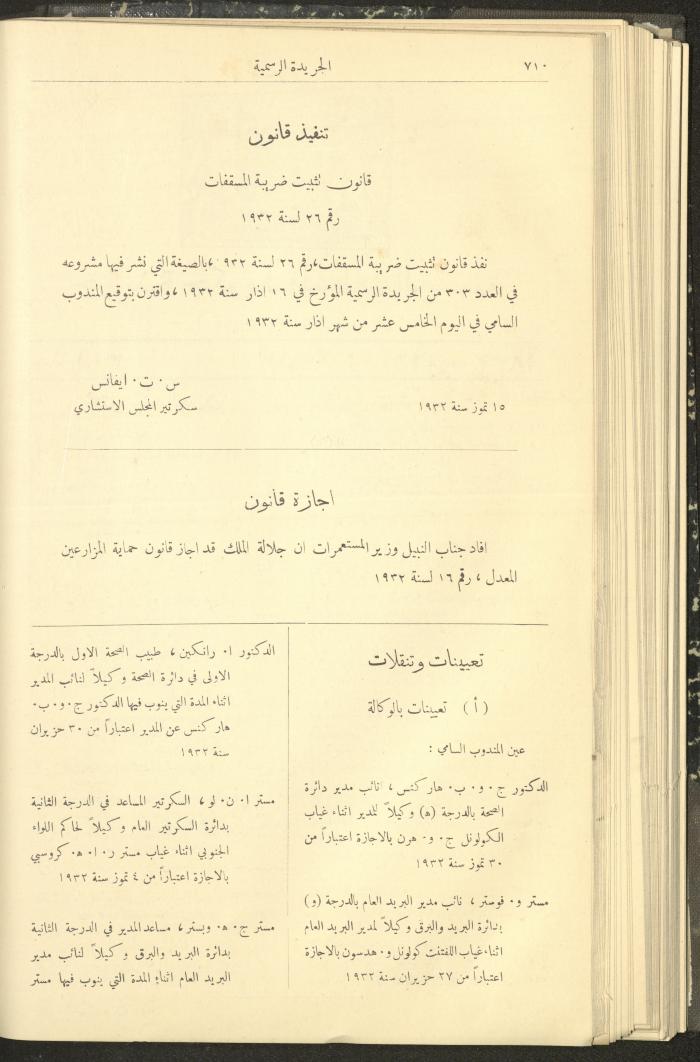 ٧١٠
الجريدة الرسمية
تنفيذ قانون
قانون تثبيت ضريبة المسقفات
رقم ٢٦ لسنة ١٩٣٢
نفذ قانون تثبيت ضريبة المسقفات، رقم ٢٦ لسنة ٩٣٢، بالصيغة التي نشر فيها مشروعه
في العدد ٣٠٣ من الجريدة الرسمية المؤرخ في ١٦ اذار سنة ١٩٣٢، واقترن بتوقيع المندوب
السامي في اليوم الخامس عشر من شهر اذار سنة ١٩٣٢
س٠ ت٠ ايفانس
١٥ تموز سنة ١٩٣٢
سكرتير المجلس الاستشاري
اجازة قانون
افاد جناب النبيل وزير المستعمرات ان جلالة الملك قد اجاز قانون حماية المزارعين
المعدل، رقم ١٦ لسنة ١٩٣٢
تعيينات وتنقلات
(أ) تعيينات بالوكالة
عين المندوب السامي :
الدكتور ج٠ و٠ ب٠ هاركنس، نائب مدير دائرة
الصحة بالدرجة (ه) وكيلاً للمدير اثناء غياب
الكولونل ج٠ و٠ هرن بالاجازة اعتباراً من
٣٠ تموز سنة ١٩٣٢
مستر و٠ فوستر، نائب مدير البريد العام بالدرجة (و)
بدائرة البريد والبرق وكيلاً لمدير البريد العام
اثناء غياب اللفتنت كولونل و٠ هدسون بالاجازة
اعتباراً من ٢٧ حزيران سنة ١٩٣٢
الدكتور ا٠ رانكين، طبيب الصحة الاول بالدرجة
الاولى في دائرة الصحة وكيلاً لنائب المدير
اثناء المدة التي ينوب فيها الدكتور ج٠ و٠ ب٠
هاركنس عن المدير اعتباراً من ٣٠ حزيران
سنة ١٩٣٢
مستر ا٠ ن٠ لو، السكرتير المساعد في الدرجة الثانية
بدائرة السكرتير العام وكيلاً لحاكم اللواء
الجنوبي اثناء غياب مستر ر٠ ا٠ ه٠ كروسبي
بالاجازة اعتباراً من ٤ تموز سنة ١٩٣٢
مستر ج٠ ه٠ وبستر، مساعد المدير في الدرجة الثانية
بدائرة البريد والبرق وكيلاً لنائب مدير
البريد العام اثناء المدة التي ينوب فيها مستر